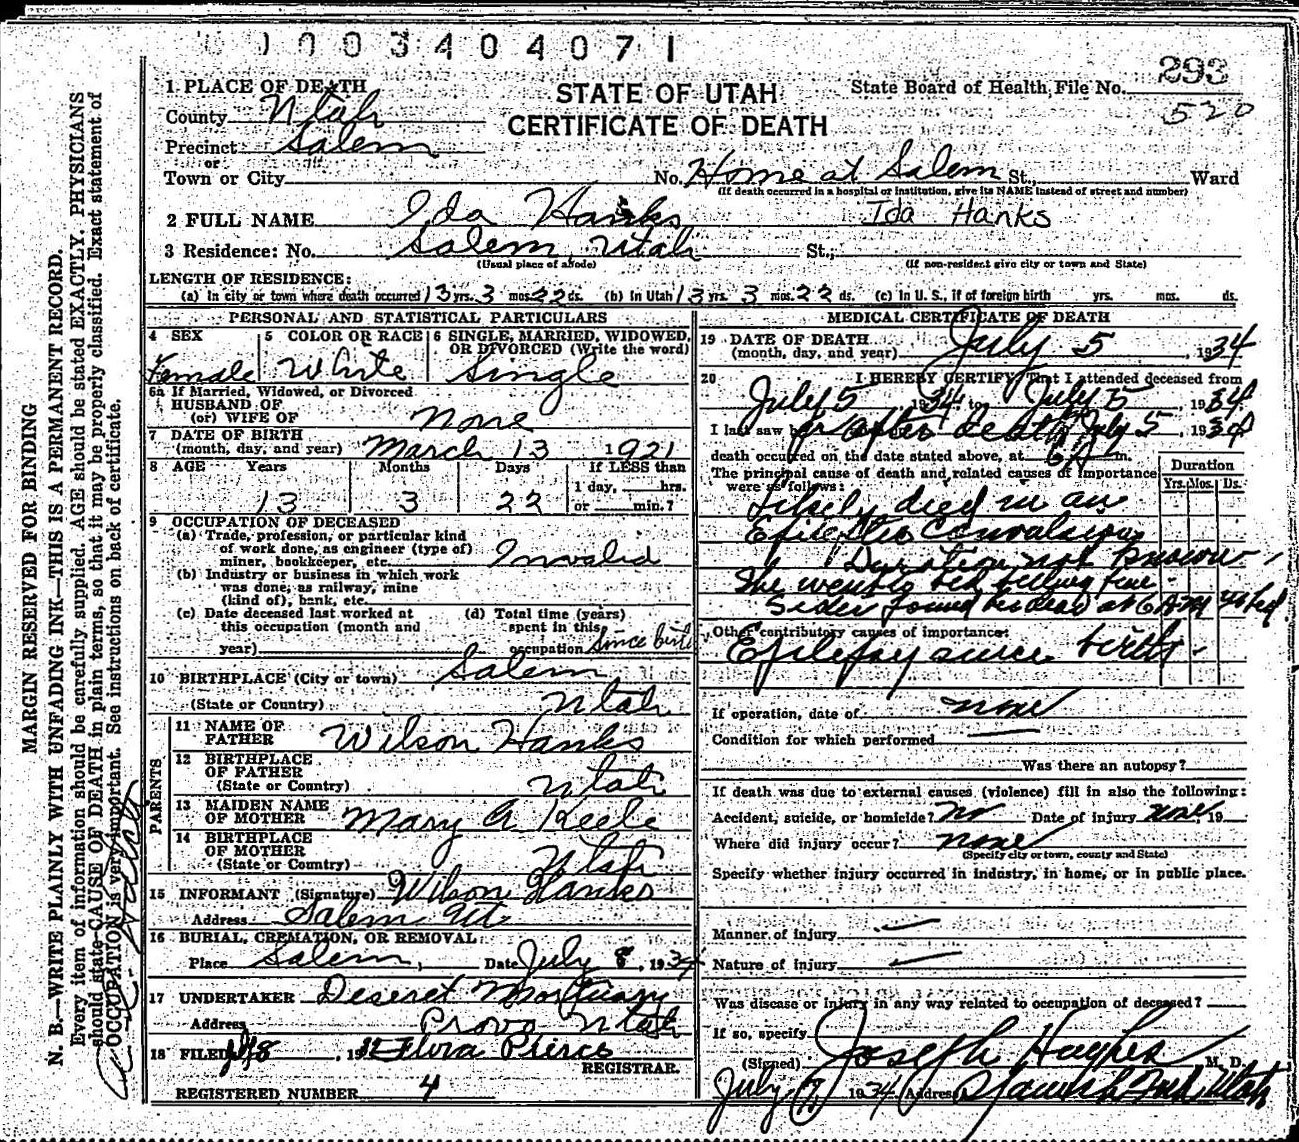 0 0 0 3 4 0 4 0 7 1
293
520
STATE OF UTAH
CERTIFICATE OF DEATH
State Board of Health, File No.
1 PLACE OF DEATH
County Utah
Precinct Salem
or
Town or City No. Home at Salem St., Ward
(If death occurred in a hospital or institution, give its NAME instead of street and number)
2 FULL NAME Ida Hanks Ida Hanks
3 Residence: No. Salem Utah St.,
(Usual place of abode) (If non-resident give city or town and State)
LENGTH OF RESIDENCE:
(a) In city or town where death occurred 13 yrs. 3 mos. 22 ds. (b) In Utah 13 yrs. 3 mos. 22 ds. (c) In U. S., if of foreign birth yrs. mos. ds.
PERSONAL AND STATISTICAL PARTICULARS
4 SEX
Female
5 COLOR OR RACE
White
6 SINGLE, MARRIED, WIDOWED,
OR DIVORCED (Write the word)
Single
6a If Married, Widowed, or Divorced
HUSBAND OF
(or) WIFE OF none
7 DATE OF BIRTH
(month, day, and year) March 13 1921
8 AGE Years Months Days If LESS than
1 day, hrs.
13 3 22 or min.?
9 OCCUPATION OF DECEASED
(a) Trade, profession, or particular kind
of work done, as engineer (type of)
miner, bookkeeper, etc. Invalid
(b) Industry or business in which work
was done, as railway, mine
(kind of), bank, etc.
(c) Date deceased last worked at
this occupation (month and
year)
(d) Total time (years)
spent in this
occupation Since birth
10 BIRTHPLACE (City or town) Salem
(State or Country) Utah
PARENTS
11 NAME OF
FATHER Wilson Hanks
12 BIRTHPLACE
OF FATHER
(State or Country) Utah
13 MAIDEN NAME
OF MOTHER Mary A Keele
14 BIRTHPLACE
OF MOTHER
(State or Country) Utah
15 INFORMANT (Signature) Wilson Hanks
Address Salem Ut
16 BURIAL, CREMATION, OR REMOVAL
Place Salem, Date July 8, 1934
17 UNDERTAKER Deseret Mortuary
Address Provo Utah
18 FILED 19 Flora Pierce
REGISTRAR.
REGISTERED NUMBER 4
MEDICAL CERTIFICATE OF DEATH
19 DATE OF DEATH
(month, day, and year) July 5, 1934
20 I HEREBY CERTIFY, That I attended deceased from
July 5 1934 to July 5, 1934
I last saw h after death July 5, 1934
death occurred on the date stated above, at 6 A m.
The principal cause of death and related causes of importance
were as follows:
Duration
Yrs. Mos. Ds.
Likely died in an
Epileptic Convulsion
Duration not known
She went to bed feeling fine
Sister found her dead at 6 A M
Other contributory causes of importance:
Epilepsy since birth.
If operation, date of none
Condition for which performed
Was there an autopsy?
If death was due to external causes (violence) fill in also the following:
Accident, suicide, or homicide? No Date of injury none 19
Where did injury occur? none
(Specify city or town, county and State)
Specify whether injury occurred in industry, in home, or in public place.
Manner of injury
Nature of injury
Was disease or injury in any way related to occupation of deceased?
If so, specify
(Signed) Joseph Hughes M. D.
July 7 1934 Address Spanish Fork Utah
MARGIN RESERVED FOR BINDING
N. B.—WRITE PLAINLY WITH UNFADING INK—THIS IS A PERMANENT RECORD.
Every item of information should be carefully supplied. AGE should be stated EXACTLY. PHYSICIANS
should state CAUSE OF DEATH in plain terms, so that it may be properly classified. Exact statement of
OCCUPATION is very important. See instructions on back of certificate.